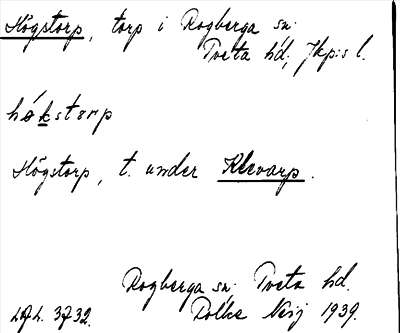 Högstorp, torp i Rogberga sn.
Tveta hd, Jkp:s l.
hǿkstorp
Högstorp, t. under Klevarp.
Rogberga sn. Tveta hd.
3732. 1939.